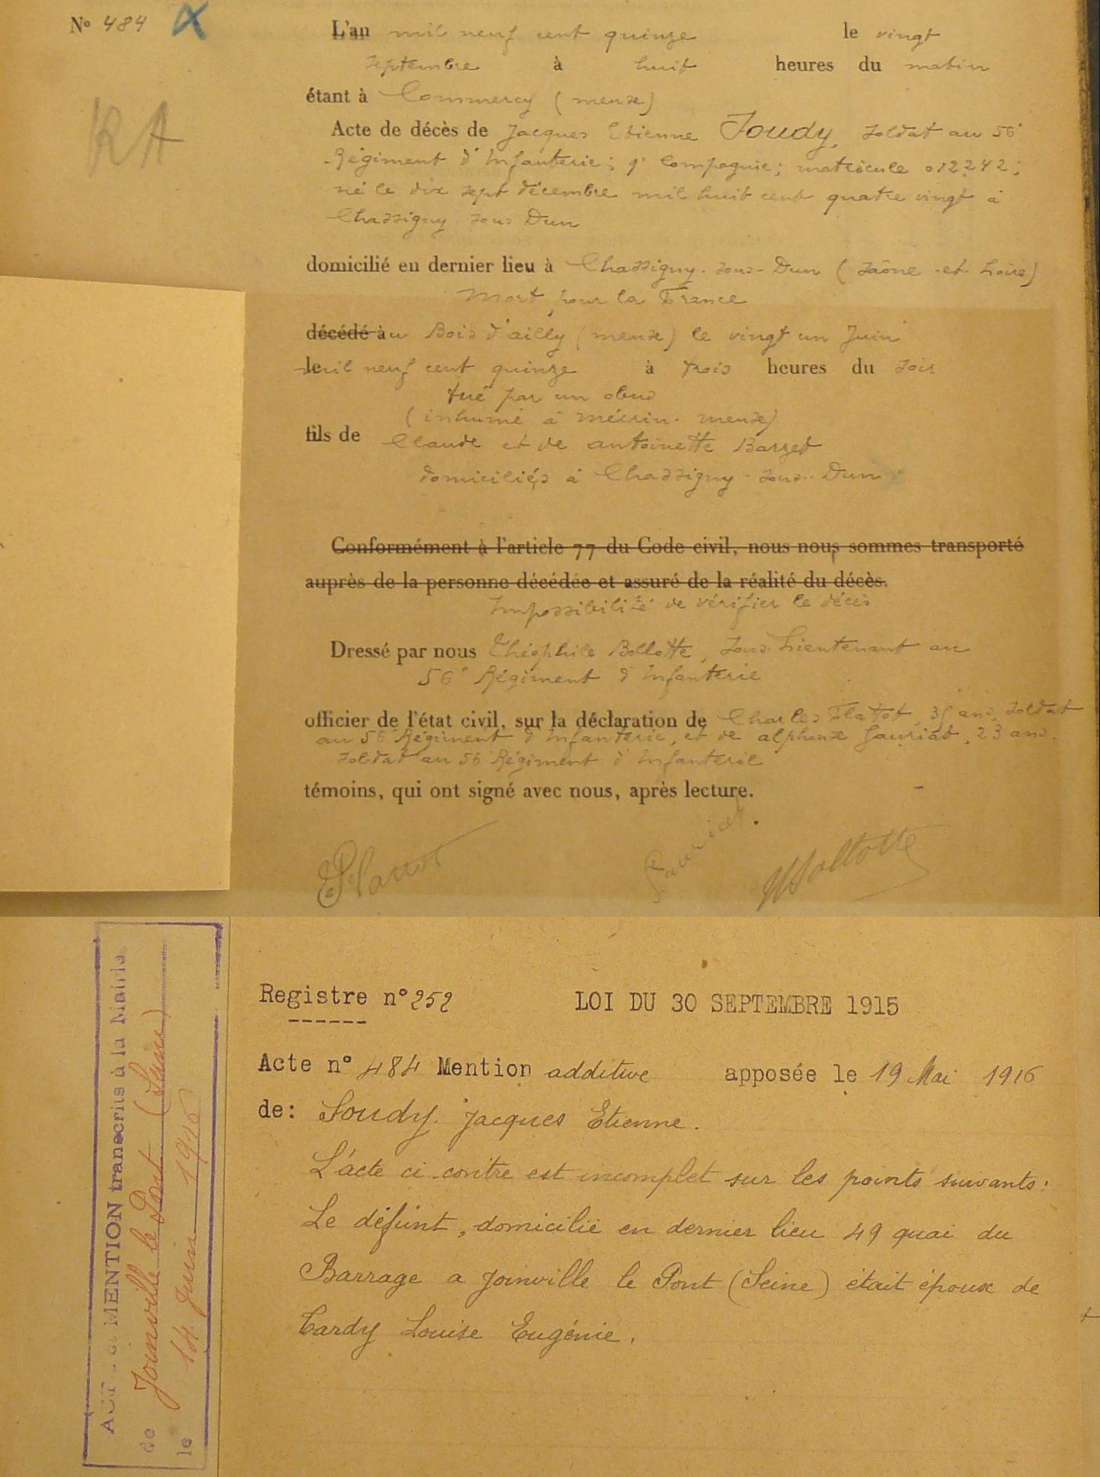 N° 484
RA
L'an mil neuf cent quinze le vingt
septembre à huit heures du matin
étant à Commercy (meuse)
Acte de décès de Jacques Etienne Soudy, soldat au 56e
Régiment d'Infanterie; 9e Compagnie; matricule 012242;
né le dix sept décembre mil huit cent quatre vingt à
Chassigny sous Dun
domicilié en dernier lieu à Chassigny-sous-Dun (Saône-et-Loire)
Mort pour la France
décédé au Bois d'ailly (meuse) le vingt un Juin
mil neuf cent quinze à trois heures du soir
tué par un obus
(inhumé à Mécrin-meuse)
fils de Claude et de antoinette
domiciliés à Chassigny-sous-Dun
Conformément à l'article 77 du Code civil, nous nous sommes transporté
auprès de la personne décédée et assuré de la réalité du décès.
Impossibilité de vérifier le décès
Dressé par nous Théophile Bollotte, Sous-Lieutenant au
56e Régiment d'Infanterie
officier de l'état civil, sur la déclaration de Charles ans, soldat
au 56e Régiment d'Infanterie, et de alphonse Gauriat, 23 ans.
soldat au 56e Régiment d'Infanterie
témoins, qui ont signé avec nous, après lecture.
Gauriat
Bollotte
MENTION transcrits à la Mairie
de Joinville le Pont (Seine)
le 14 Juin 1916
Registre n° 252 LOI DU 30 SEPTEMBRE 1915
Acte n° 484 Mention additive apposée le 19 Mai 1916
de: Soudy. Jacques Etienne.
L'acte ci-contre est incomplet sur les points suivants:
Le défunt, domicilié en dernier lieu 49 quai du
Barrage a Joinville le Pont (Seine) était époux de
Tardy Louise Eugénie.